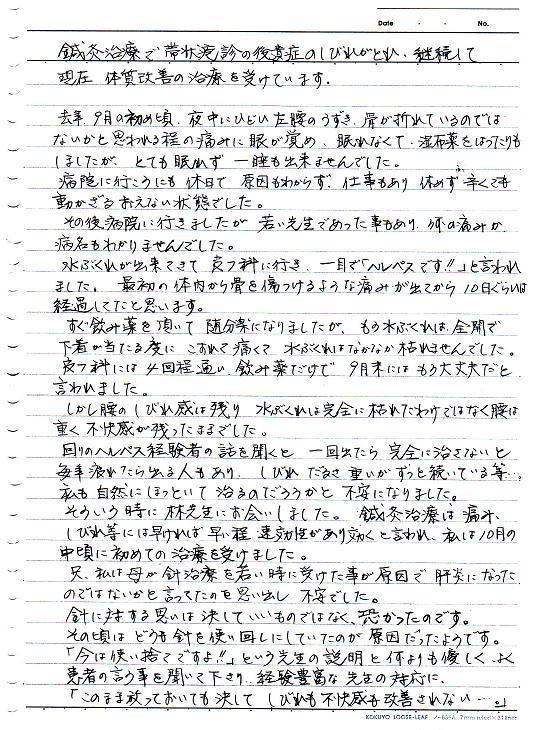 Date . . No.
鍼灸治療で帯状疱疹の後遺症のしびれがとれ、継続して
現在 体質改善の治療を受けています。
去年、9月の初め頃、夜中にひどい左腰のうずき、骨が折れているのでは
ないかと思われる程の痛みに眼が覚め、眠れなくて、湿布薬をはったりも
しましたが、とても眠れず 一睡も出来ませんでした。
病院に行こうにも 休日で 原因もわからず、仕事もあり 休めず 辛くても
動かざるおえない状態でした。
その後病院に行きましたが 若い先生であった事もあり、何の痛みか
病名もわかりませんでした。
水ぶくれが出来てきて 皮フ科に行き、一目で「ヘルペスです!!」と言われ
ました。 最初の体内から骨を傷つけるような痛みが出てから 10日ぐらいは
経過してたと思います。
すぐ飲み薬を頂いて 随分楽になりましたが、もう水ぶくれは全開で
下着が当たる度に こすれて痛くて 水ぶくれはなかなか枯れませんでした。
皮フ科には 4回程通い、飲み薬だけで 9月末には もう大丈夫だと
言われました。
しかし腰のしびれ感は残り 水ぶくれは完全に枯れたわけではなく腰は
重く 不快感が残ったままでした。
回りのヘルペス経験者の話を聞くと 一回出たら 完全に治さないと
毎年疲れたら出る人もあり、しびれ だるさ 重いがずっと続いている等…。
私も 自然にほっといて 治るのだろうかと 不安になりました。
そういう時に 林先生にお会いしました。 鍼灸治療は痛み、
しびれ等には早ければ早い程 速効性があり効くと言われ、私は10月の
中頃に初めての治療を受けました。
只、私は母が針治療を若い時に受けた事が原因で 肝炎になった
のではないかと言ってたのを思い出し 不安でした。
針に対する思いは決していいものではなく、恐かったのです。
その頃は どうも針を使い回しにしていたのが 原因だったようです。
「今は使い捨てですよ!!」という先生の説明と何よりも優しく、よく
患者の言う事を聞いて下さり、経験豊富な 先生の対応に、
「このまま放っておいても決して しびれも不快感も改善されない…。」
KOKUYO LOOSE-LEAF